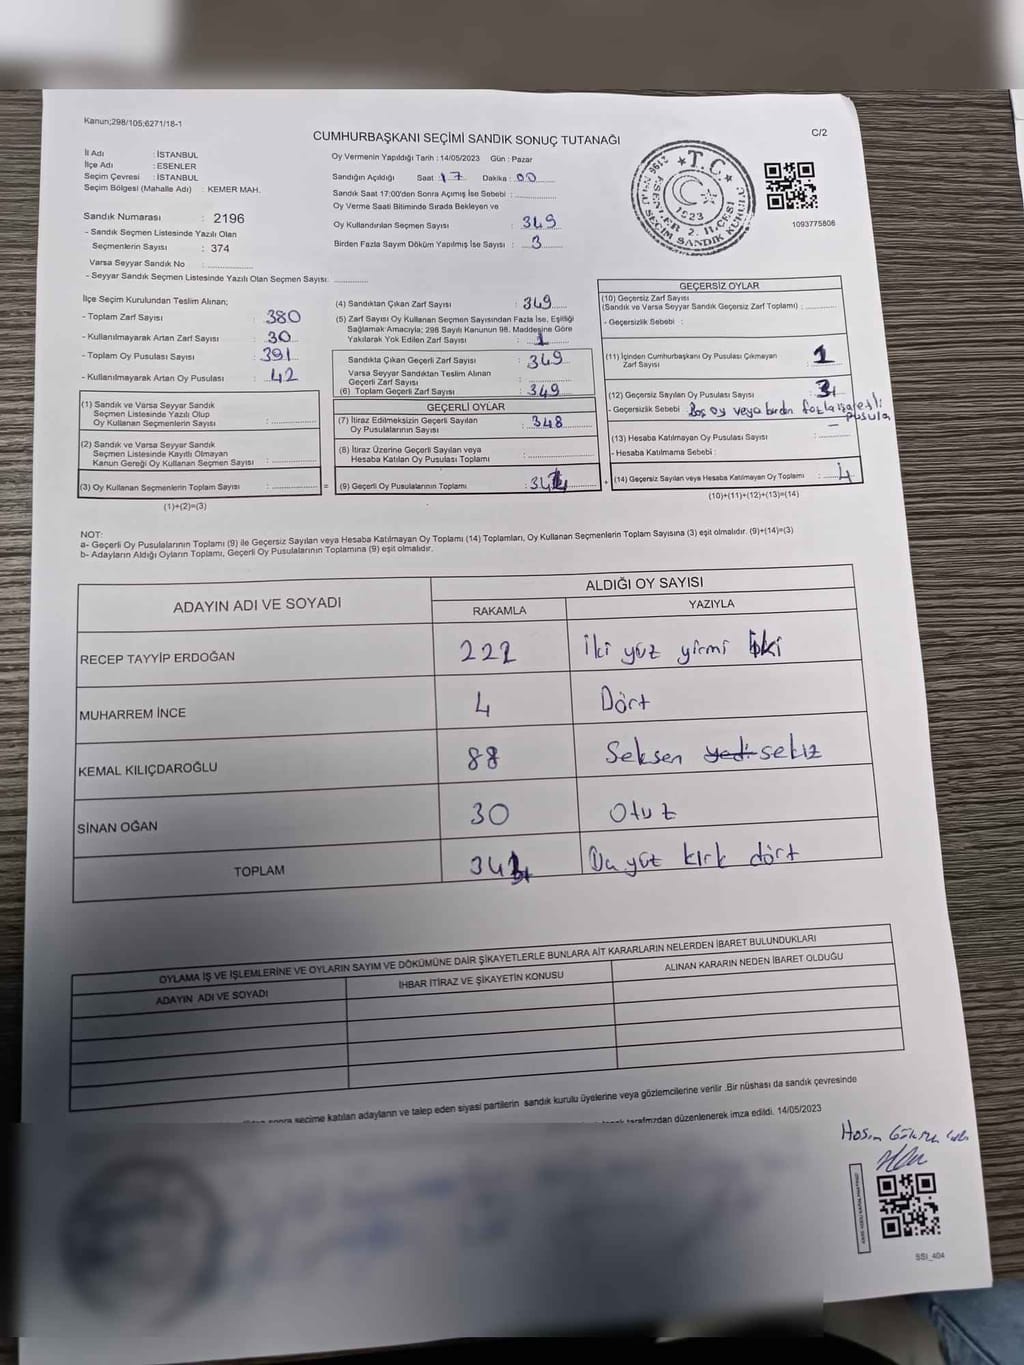 Kanun;298/105;6271/18-1
C/2
CUMHURBAŞKANI SEÇİMİ SANDIK SONUÇ TUTANAĞI
İl Adı : İSTANBUL
İlçe Adı : ESENLER
Seçim Çevresi : İSTANBUL
Seçim Bölgesi (Mahalle Adı) : KEMER MAH.
Sandık Numarası : 2196
- Sandık Seçmen Listesinde Yazılı Olan
Seçmenlerin Sayısı : 374
Varsa Seyyar Sandık No :
- Seyyar Sandık Seçmen Listesinde Yazılı Olan Seçmen Sayısı:
Oy Vermenin Yapıldığı Tarih : 14/05/2023 Gün : Pazar
Sandığın Açıldığı Saat : 17 Dakika : 00
Sandık Saat 17:00'den Sonra Açımış İse Sebebi :
Oy Verme Saati Bitiminde Sırada Bekleyen ve
Oy Kullandırılan Seçmen Sayısı : 349
Birden Fazla Sayım Döküm Yapılmış İse Sayısı : 3
T.C.
1923
ESENLER 2. İLÇESİ
SEÇİM SANDIK KURULU
2196
1093775806
İlçe Seçim Kurulundan Teslim Alınan;
- Toplam Zarf Sayısı : 380
- Kullanılmayarak Artan Zarf Sayısı : 30
- Toplam Oy Pusulası Sayısı : 391
- Kullanılmayarak Artan Oy Pusulası : 42
(1) Sandık ve Varsa Seyyar Sandık
Seçmen Listesinde Yazılı Olup
Oy Kullanan Seçmen Sayısı :
(2) Sandık ve Varsa Seyyar Sandık
Seçmen Listesinde Kayıtlı Olmayan
Kanun Gereği Oy Kullanan Seçmen Sayısı :
(3) Oy Kullanan Seçmenlerin Toplam Sayısı : =
(1)+(2)=(3)
(4) Sandıktan Çıkan Zarf Sayısı : 349
(5) Zarf Sayısı Oy Kullanan Seçmen Sayısından Fazla İse, Eşitliği
Sağlamak Amacıyla; 298 Sayılı Kanunun 98. Maddesine Göre
Yakılarak Yok Edilen Zarf Sayısı : 1
Sandıkta Çıkan Geçerli Zarf Sayısı : 349
Varsa Seyyar Sandıktan Teslim Alınan
Geçerli Zarf Sayısı :
(6) Toplam Geçerli Zarf Sayısı : 349
GEÇERLİ OYLAR
(7) İtiraz Edilmeksizin Geçerli Sayılan
Oy Pusulalarının Sayısı : 348
(8) İtiraz Üzerine Geçerli Sayılan veya
Hesaba Katılan Oy Pusulası Toplamı :
(9) Geçerli Oy Pusulalarının Toplamı : 344 +
GEÇERSİZ OYLAR
(10) Geçersiz Zarf Sayısı
(Sandık ve Varsa Seyyar Sandık Geçersiz Zarf Toplamı) :
- Geçersizlik Sebebi :
(11) İçinden Cumhurbaşkanı Oy Pusulası Çıkmayan
Zarf Sayısı : 1
(12) Geçersiz Sayılan Oy Pusulası Sayısı : 3
- Geçersizlik Sebebi : Boş oy veya birden fazla işaretli
pusula
(13) Hesaba Katılmayan Oy Pusulası Sayısı :
- Hesaba Katılmama Sebebi :
(14) Geçersiz Sayılan veya Hesaba Katılmayan Oy Toplamı : 4
(10)+(11)+(12)+(13)=(14)
NOT:
a- Geçerli Oy Pusulalarının Toplamı (9) ile Geçersiz Sayılan veya Hesaba Katılmayan Oy Toplamı (14) Toplamları, Oy Kullanan Seçmenlerin Toplam Sayısına (3) eşit olmalıdır. (9)+(14)=(3)
b- Adayların Aldığı Oyların Toplamı, Geçerli Oy Pusulalarının Toplamına (9) eşit olmalıdır.
ADAYIN ADI VE SOYADI
ALDIĞI OY SAYISI
RAKAMLA YAZIYLA
RECEP TAYYİP ERDOĞAN 222 İki yüz yirmi iki
MUHARREM İNCE 4 Dört
KEMAL KILIÇDAROĞLU 88 Seksen yedi sekiz
SİNAN OĞAN 30 Otuz
TOPLAM 344 Üç yüz kırk dört
OYLAMA İŞ VE İŞLEMLERİNE VE OYLARIN SAYIM VE DÖKÜMÜNE DAİR ŞİKAYETLERLE BUNLARA AİT KARARLARIN NELERDEN İBARET BULUNDUKLARI
ADAYIN ADI VE SOYADI İHBAR İTİRAZ VE ŞİKAYETİN KONUSU ALINAN KARARIN NEDEN İBARET OLDUĞU
sonra seçime katılan adayların ve talep eden siyasi partilerin sandık kurulu üyelerine veya gözlemcilerine verilir .Bir nüshası da sandık çevresinde
tarafımızdan düzenlenerek imza edildi. 14/05/2023
SSI_404